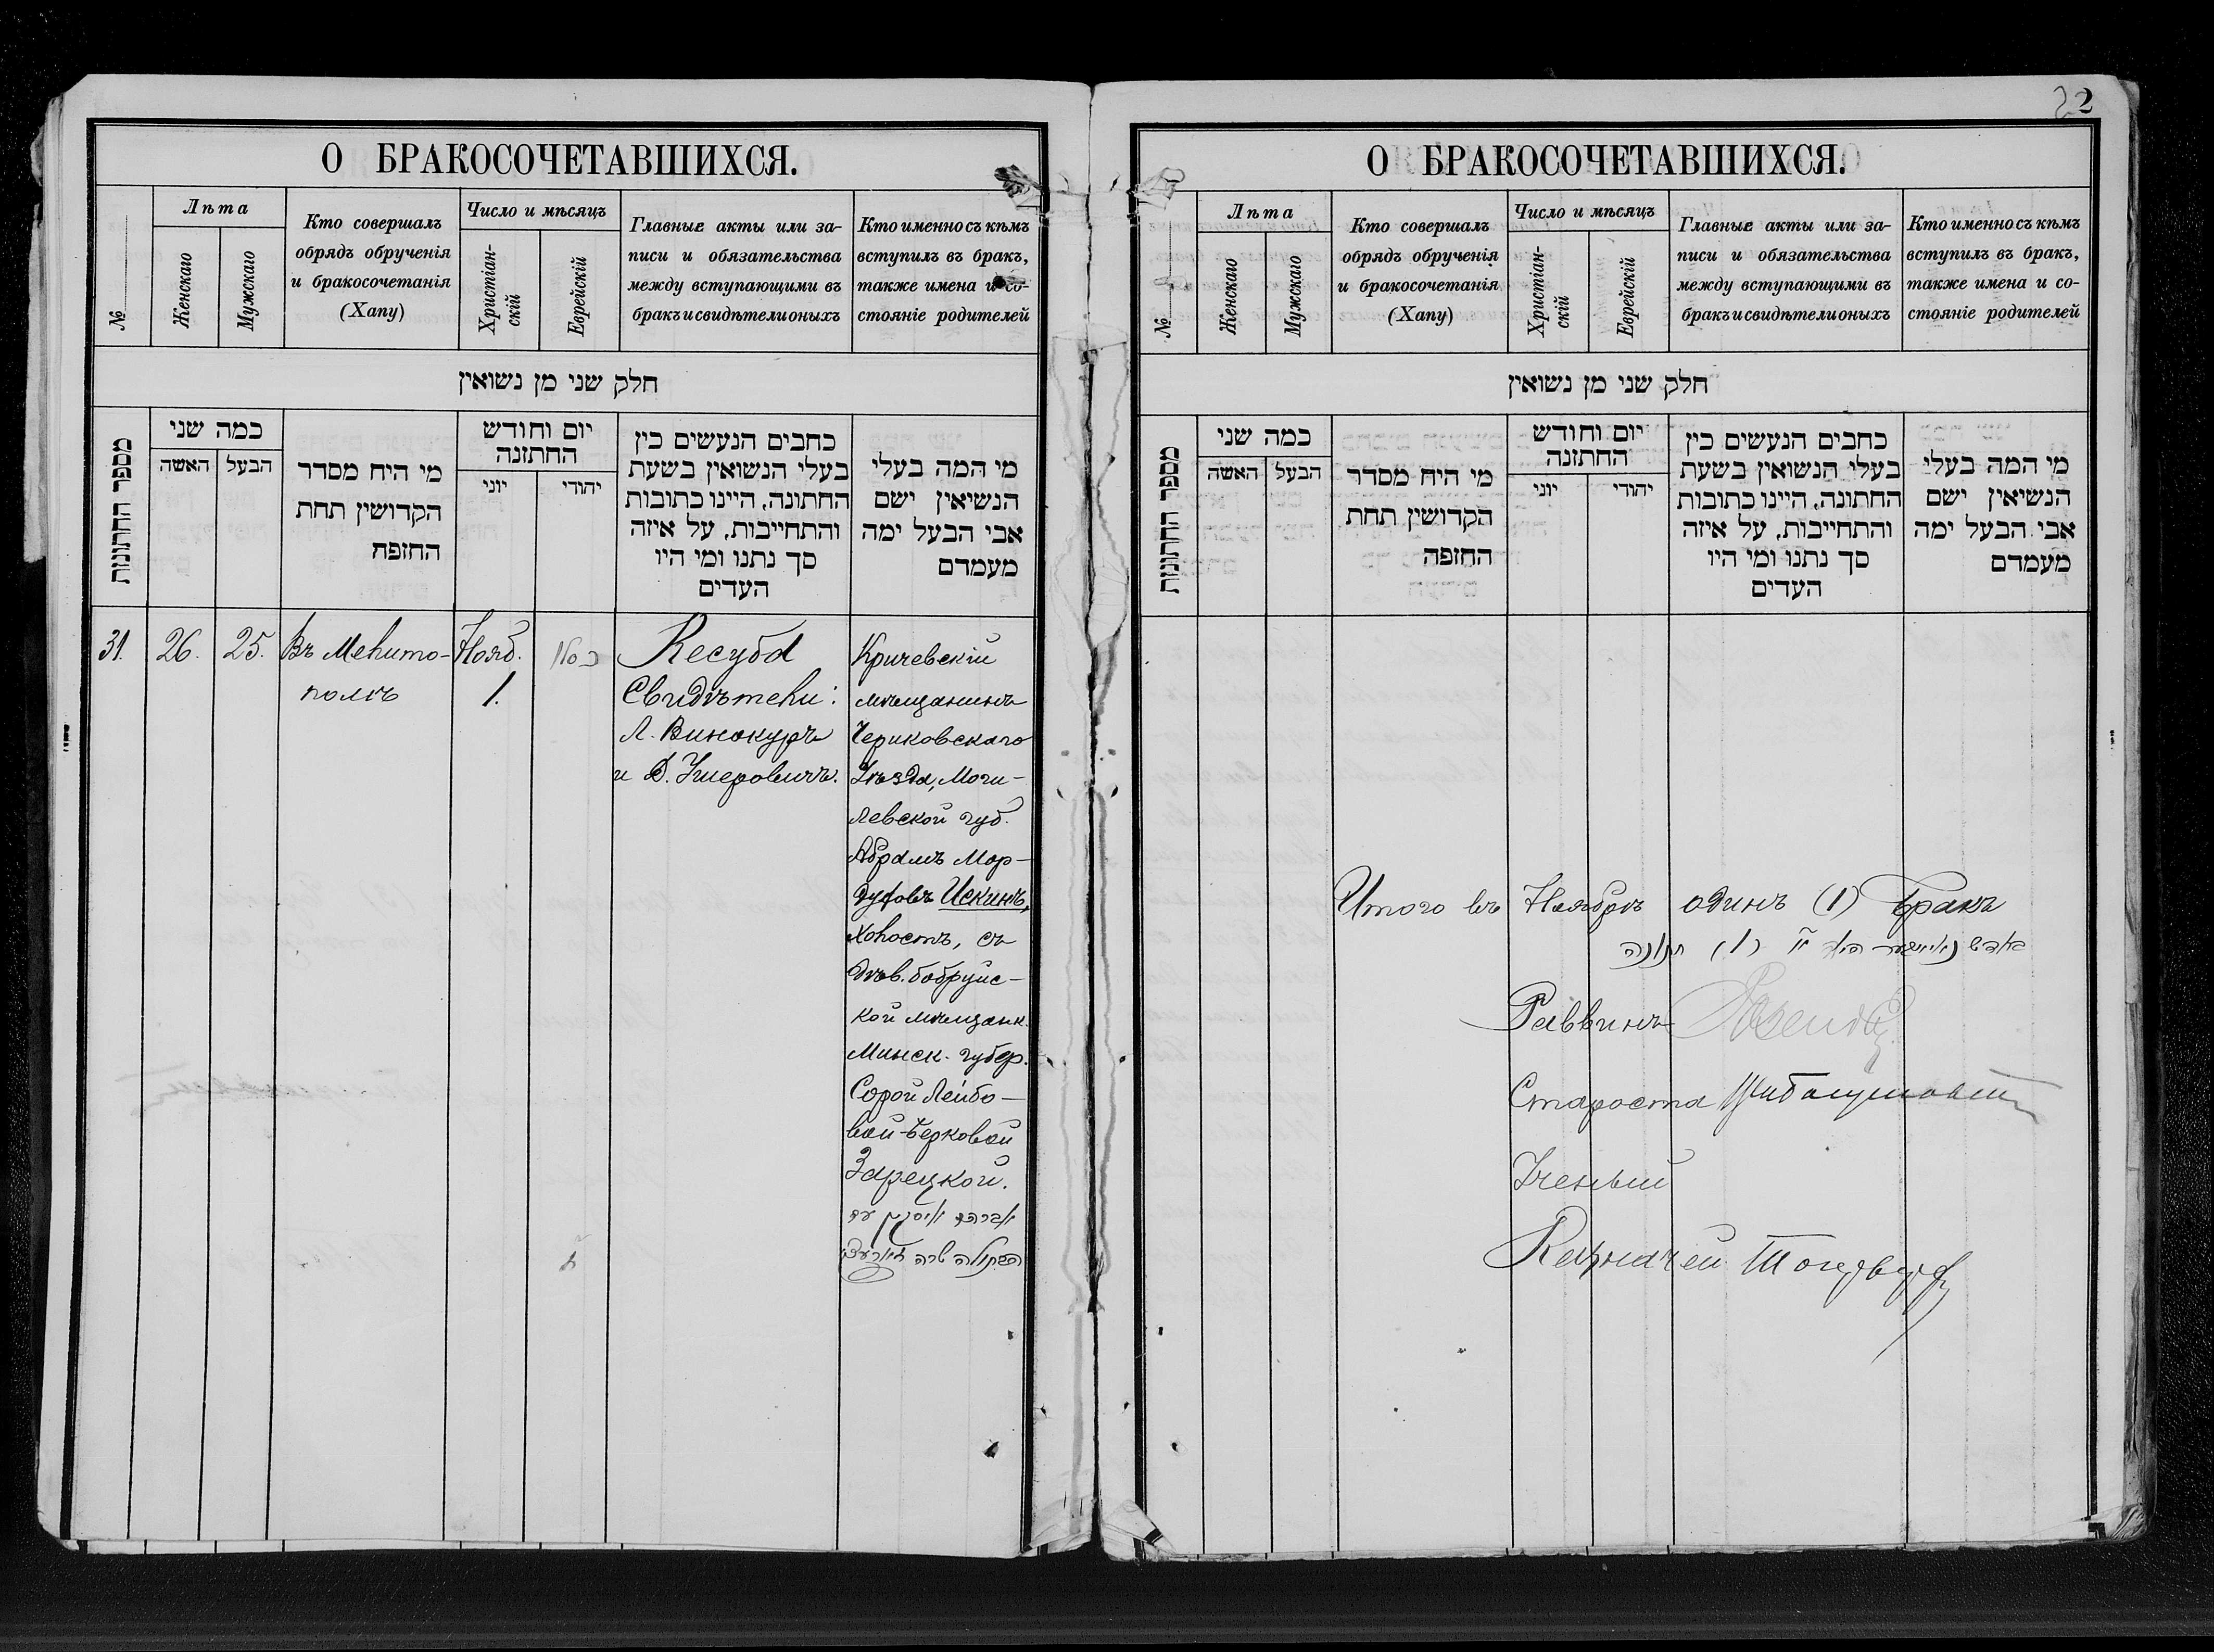 22
О БРАКОСОЧЕТАВШИХСЯ.
№
Лѣта
Женскаго
Мужскаго
Кто совершалъ
обрядъ обрученія
и бракосочетанія
(Хапу)
Число и мѣсяцъ
Христіан-
скій
Еврейскій
Главные акты или за-
писи и обязательства
между вступающими въ
бракъ и свидѣтели оныхъ
Кто именно съ кѣмъ
вступилъ въ бракъ,
также имена и со-
стояніе родителей
חלק שני מן נשואין
מספר החתונות
כמה שני
האשה
הבעל
מי היח מסדר
הקדושין תחת
החופח
יום וחודש
החתזנה
יוני
יהודי
כחבים הנעשים כין
בעלי הנשואין בשעת
החתונה, היינו כתובות
והתחייבות, על איזה
סך נתנו ומי היו
העדים
מי המה בעלי
הנשיאין ישם
אבי הבעל ימה
מעמדם
31.
26.
25.
Въ Мелито-
полѣ
Нояб.
1.
Кесуба
Свидѣтели:
Л. Винокуръ
и Д. Ушеровичъ.
Кричевскій
мѣщанинъ
Чериковскаго
Уѣзда, Моги-
левской губ.
Абрамъ Мор-
духовъ Искинъ,
холостъ, съ
дѣв. бобруйс-
кой мѣщанк.
Минск. губер.
Сорой Лейбо-
вой-Берковой
Зарецкой.
О БРАКОСОЧЕТАВШИХСЯ.
№
Лѣта
Женскаго
Мужскаго
Кто совершалъ
обрядъ обрученія
и бракосочетанія
(Хапу)
Число и мѣсяцъ
Христіан-
скій
Еврейскій
Главные акты или за-
писи и обязательства
между вступающими въ
бракъ и свидѣтели оныхъ
Кто именно съ кѣмъ
вступилъ въ бракъ,
также имена и со-
стояніе родителей
חלק שני מן נשואין
מספר החתונות
כמה שני
האשה
הבעל
מי היח מסדר
הקדושין תחת
החזפה
יום וחודש
החתזנה
יוני
יהודי
כחבים הנעשים כין
בעלי הנשואין בשעת
החתונה, היינו כתובות
והתחייבות, על איזה
סך נתנו ומי היו
העדים
מי המה בעלי
הנשיאין ישם
אבי הבעל ימה
מעמדם
Итого въ Ноябрѣ одинъ (1) бракъ
(1) חתונה
Раввинъ
Староста
Ученый
Казначей